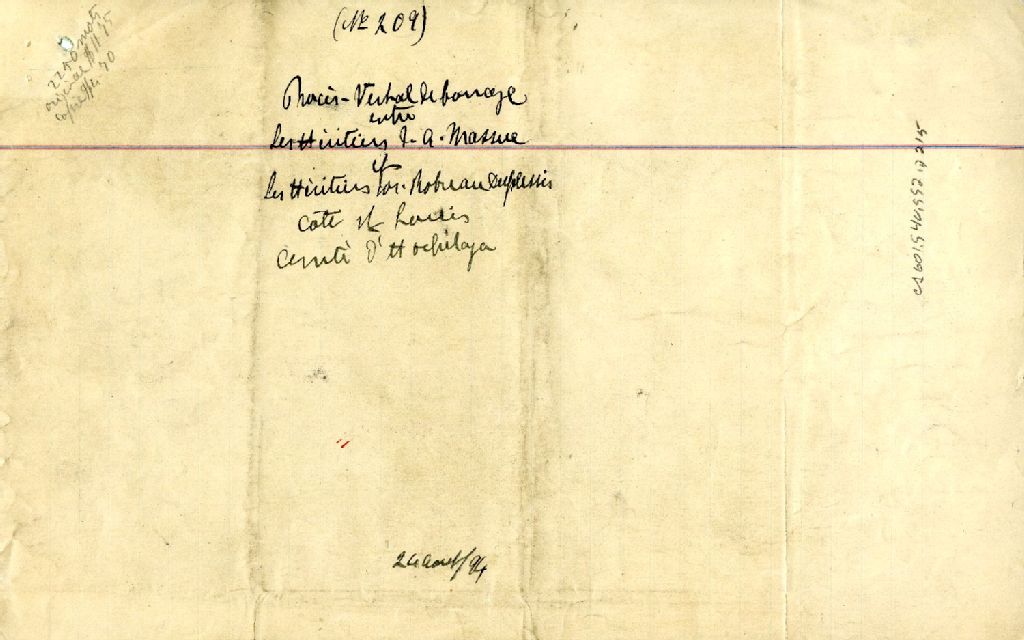 2250 mots
original $11.25
copie
(No 209)
Procès-Verbal de bornage
entre
Les Héritiers J. A. Massue
et
Les Héritiers Jos. Robreau Duplessis
Côte St Louis
Comté d'Hochelaga
24 aout/94